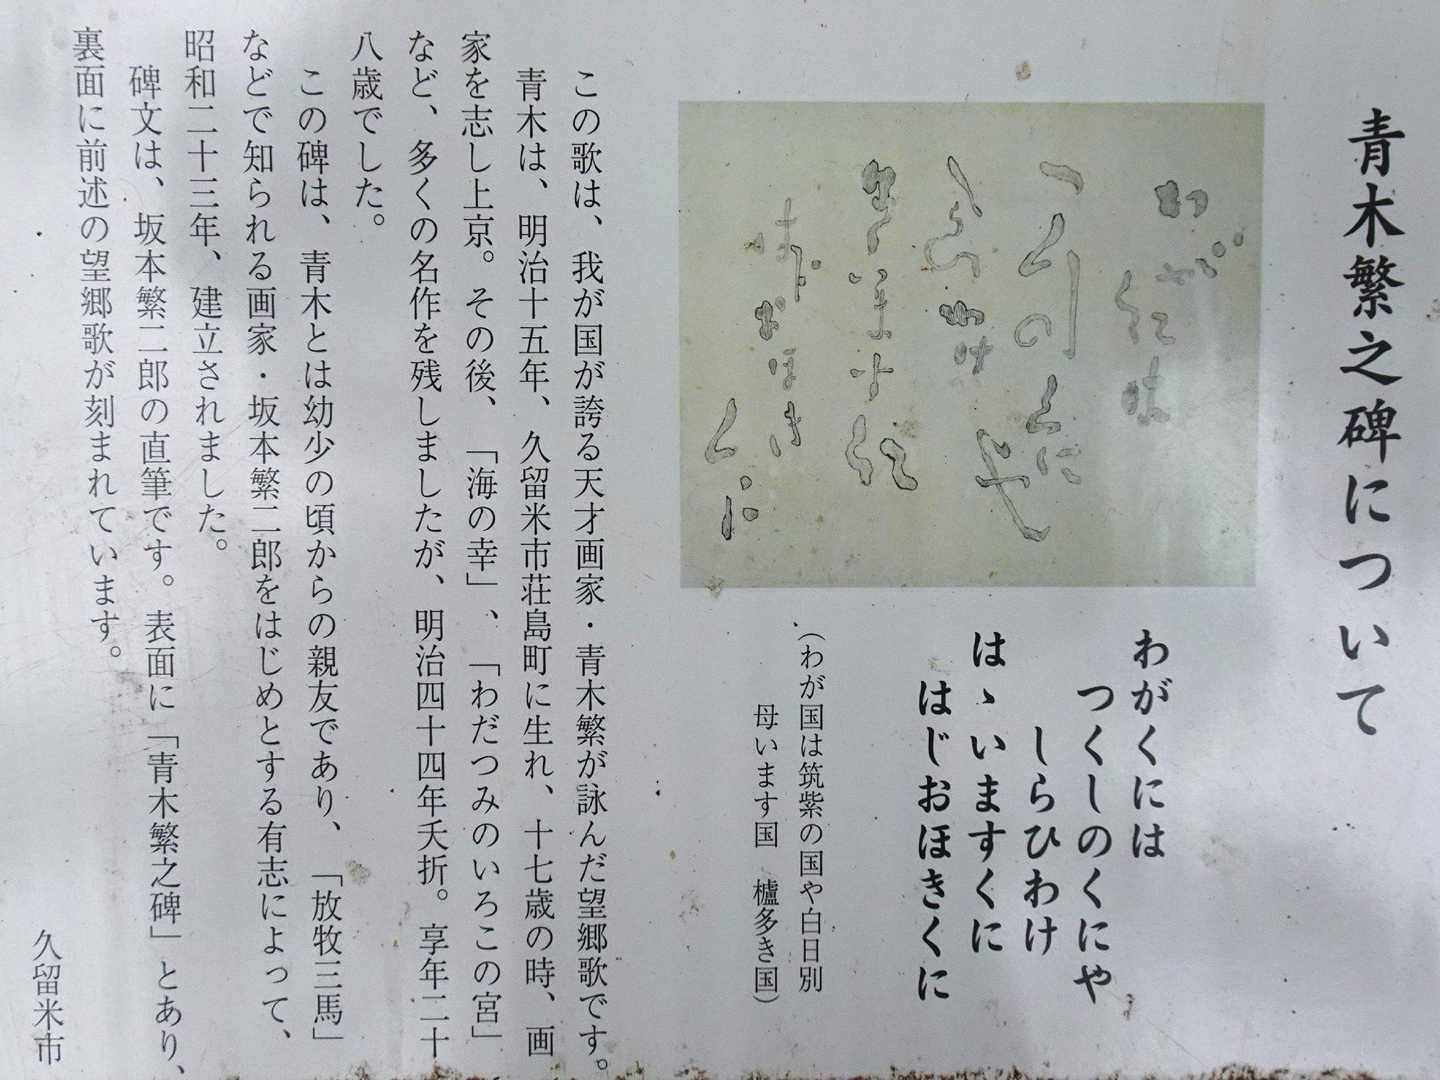 青木繁之碑について
わがくには
つくしのくにや
しらひわけ
はゝいますくに
はじおほきくに
わがくには
つくしのくにや
しらひわけ
はゝいますくに
はじおほきくに
（わが国は筑紫の国や白日別
母います国　櫨多き国）
この歌は、我が国が誇る天才画家・青木繁が詠んだ望郷歌です。
青木は、明治十五年、久留米市荘島町に生れ、十七歳の時、画
家を志し上京。その後、「海の幸」、「わだつみのいろこの宮」
など、多くの名作を残しましたが、明治四十四年夭折。享年二十
八歳でした。
この碑は、青木とは幼少の頃からの親友であり、「放牧三馬」
などで知られる画家・坂本繁二郎をはじめとする有志によって、
昭和二十三年、建立されました。
碑文は、坂本繁二郎の直筆です。表面に「青木繁之碑」とあり、
裏面に前述の望郷歌が刻まれています。
久留米市